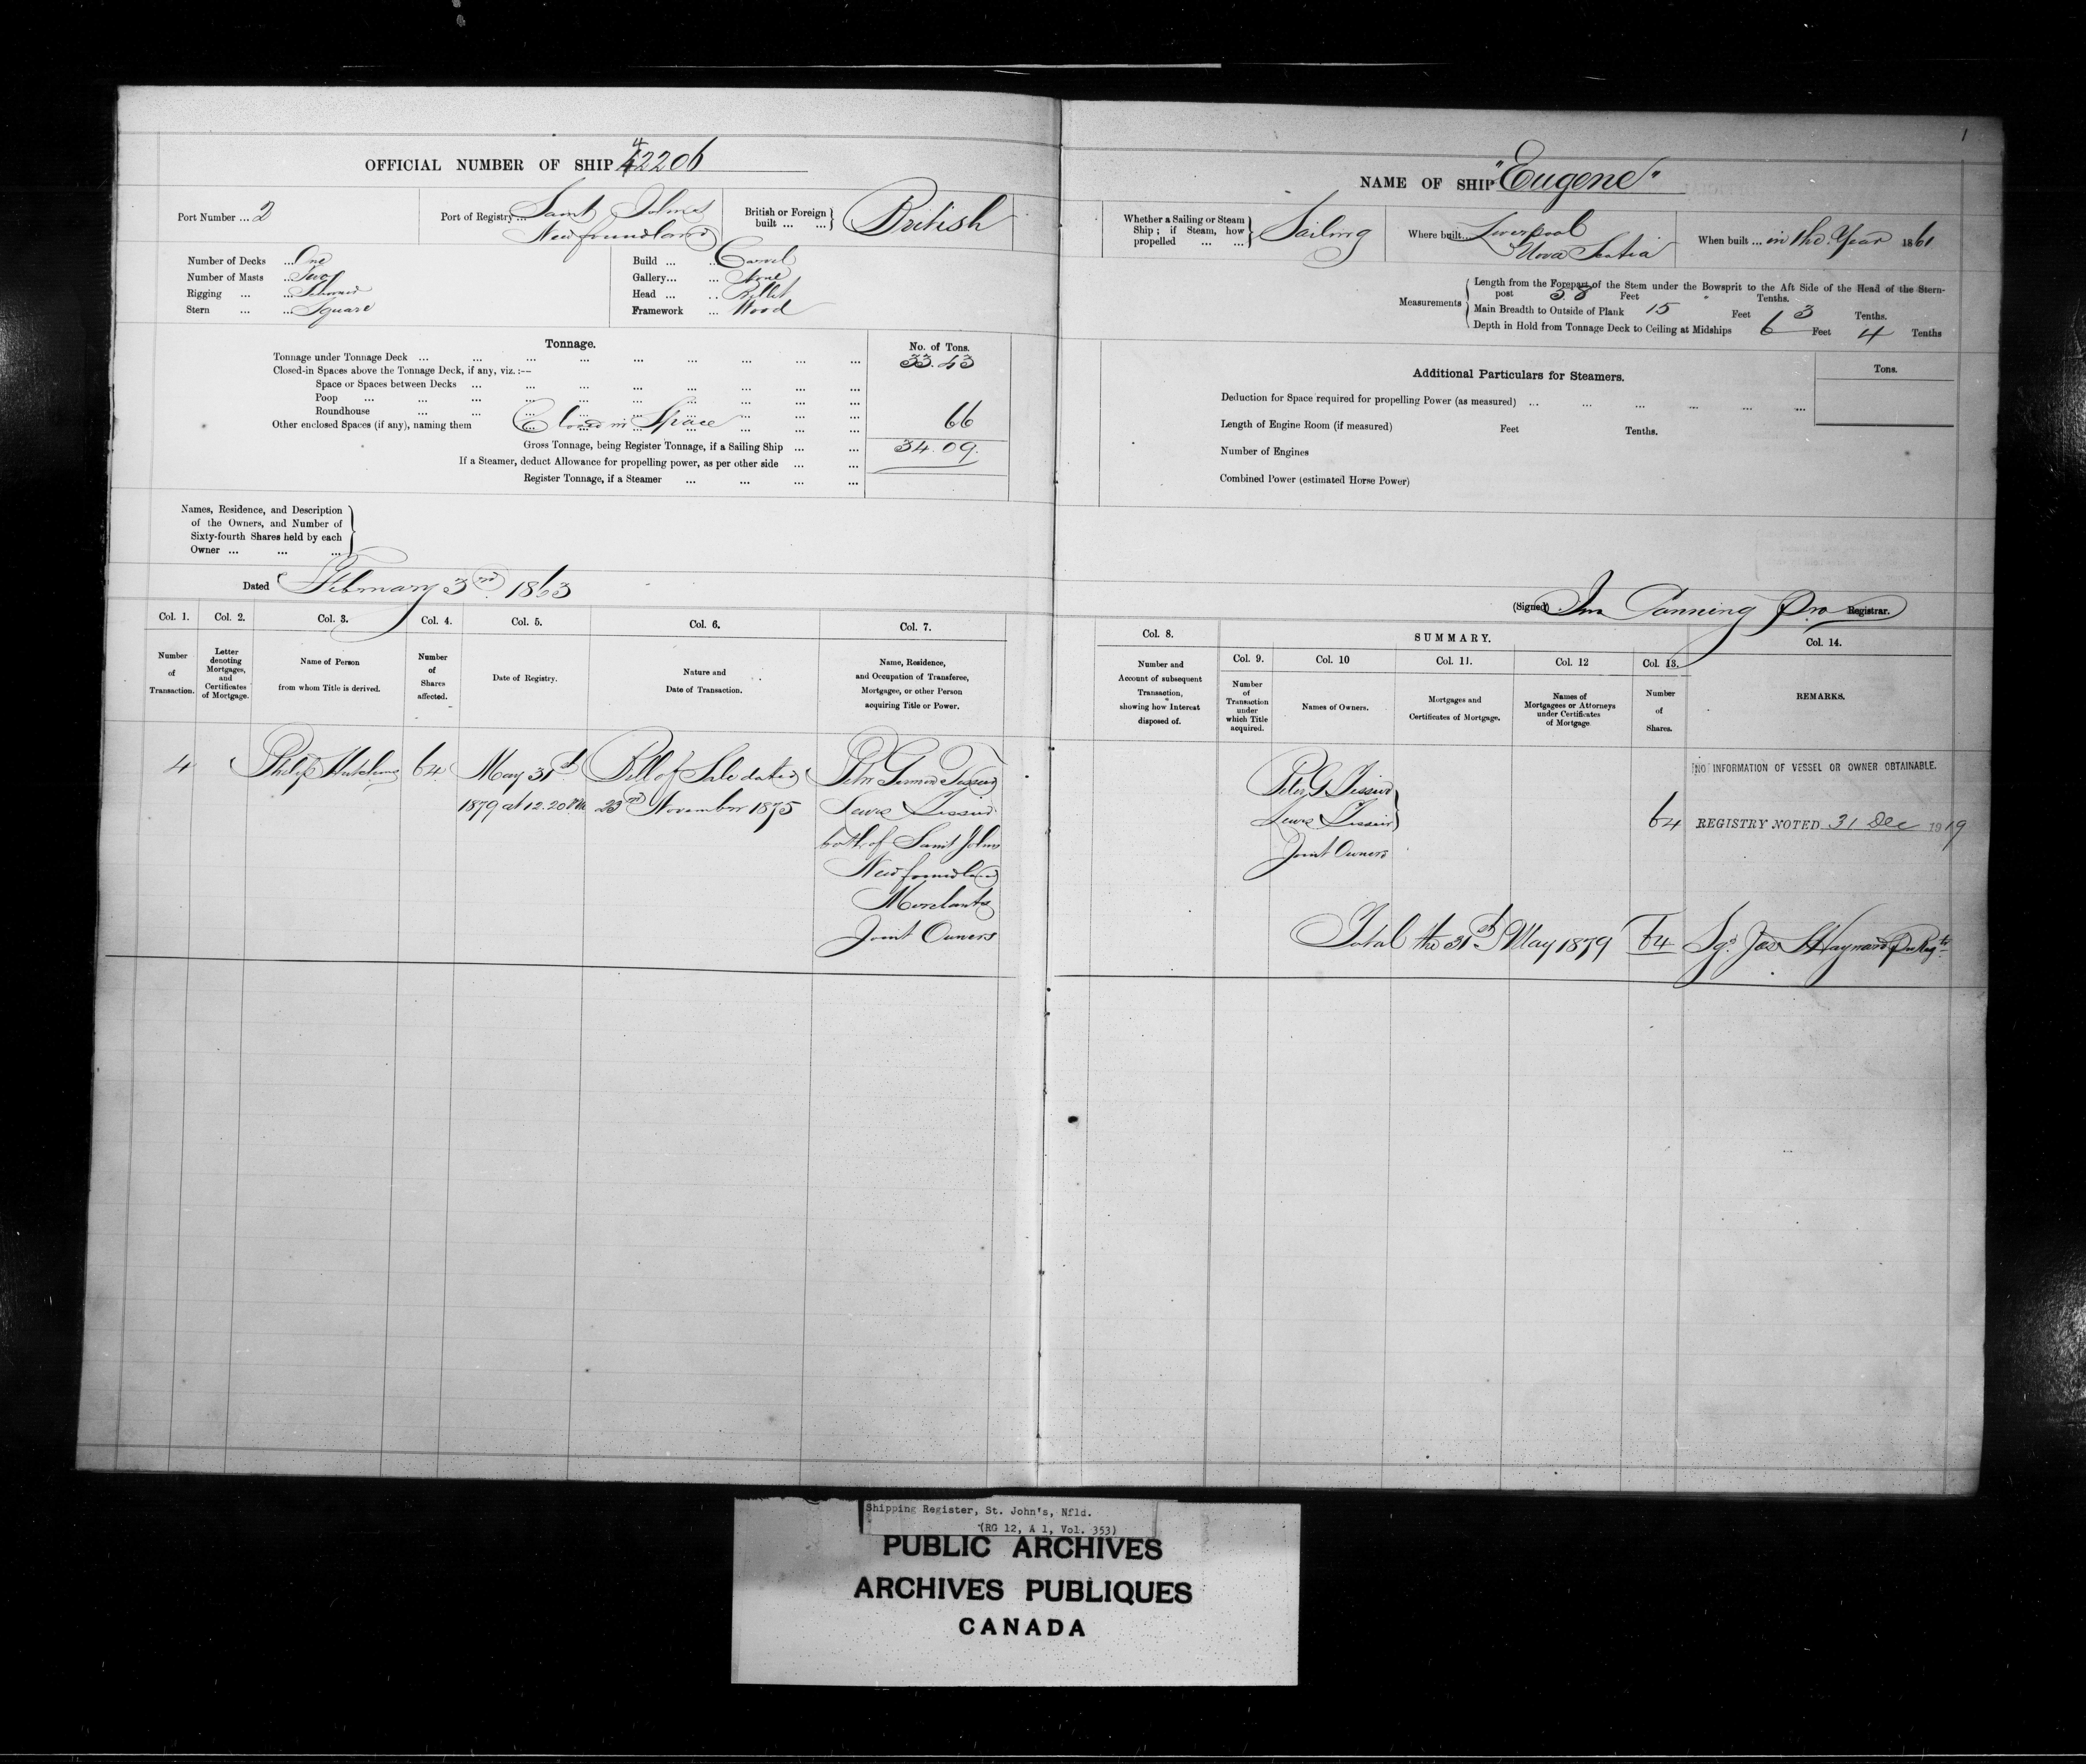 OFFICIAL NUMBER OF SHIP 42206
Port Number ... 2
Port of Registry ... Saint Johns
Newfoundland
British or Foreign built ... ... British
Number of Decks ... One
Number of Masts ... Two
Rigging ... ... Schooner
Stern ... ... Square
Build ... ... Carvel
Gallery... ... None
Head ... ... Billet
Framework ... Wood
Tonnage.
No. of Tons.
Tonnage under Tonnage Deck ... ... ... ... ... ... ... ... ... 33.43
Closed-in Spaces above the Tonnage Deck, if any, viz.:--
Space or Spaces between Decks ... ... ... ... ... ... ... ...
Poop ... ... ... ... ... ... ... ... ... ...
Roundhouse ... ... ... ... ... ... ... ... ...
Other enclosed Spaces (if any), naming them Closed in Space ... ... ... 66
Gross Tonnage, being Register Tonnage, if a Sailing Ship ... ... 34.09.
If a Steamer, deduct Allowance for propelling power, as per other side ... ...
Register Tonnage, if a Steamer ... ... ... ...
Names, Residence, and Description
of the Owners, and Number of
Sixty-fourth Shares held by each
Owner ... ... ...
Dated February 3rd 1863
Col. 1. Col. 2. Col. 3. Col. 4. Col. 5. Col. 6. Col. 7.
Number
of
Transaction.
Letter
denoting
Mortgages,
and
Certificates
of Mortgage.
Name of Person
from whom Title is derived.
Number
of
Shares
affected.
Date of Registry.
Nature and
Date of Transaction.
Name, Residence,
and Occupation of Transferee,
Mortgagee, or other Person
acquiring Title or Power.
4 Philip Hutchins 64 May 31st Bill of Sale dated Peter Tessier
1879 at 12.20 PM 23rd November 1875 Lewis Tessier
both of Saint Johns
Newfoundland
Merchants
Joint Owners
1
NAME OF SHIP "Eugene"
Whether a Sailing or Steam
Ship; if Steam, how
propelled ... ...
Sailing
Where built... Liverpool
Nova Scotia
When built ... in the Year 1861
Measurements
Length from the Forepart of the Stem under the Bowsprit to the Aft Side of the Head of the Stern-
post 58 Feet Tenths.
Main Breadth to Outside of Plank 15 Feet 3 Tenths.
Depth in Hold from Tonnage Deck to Ceiling at Midships 6 Feet 4 Tenths
Additional Particulars for Steamers.
Tons.
Deduction for Space required for propelling Power (as measured) ... ... ... ... ... ...
Length of Engine Room (if measured) Feet Tenths.
Number of Engines
Combined Power (estimated Horse Power)
(Signed) Jno Canning Pro Registrar.
Col. 8.
SUMMARY.
Col. 9. Col. 10 Col. 11. Col. 12 Col. 13. Col. 14.
Number and
Account of subsequent
Transaction,
showing how Interest
disposed of.
Number
of
Transaction
under
which Title
acquired.
Names of Owners.
Mortgages and
Certificates of Mortgage.
Names of
Mortgagees or Attorneys
under Certificates
of Mortgage
Number
of
Shares.
REMARKS.
Peter G Tessier
Lewis Tessier
Joint Owners
64
NO INFORMATION OF VESSEL OR OWNER OBTAINABLE.
REGISTRY NOTED 31 Dec 1919
Total the 31st May 1879 64 Sgd Jas Hayward
Shipping Register, St. John's, Nfld.
(RG 12, A 1, Vol. 353)
PUBLIC ARCHIVES
ARCHIVES PUBLIQUES
CANADA